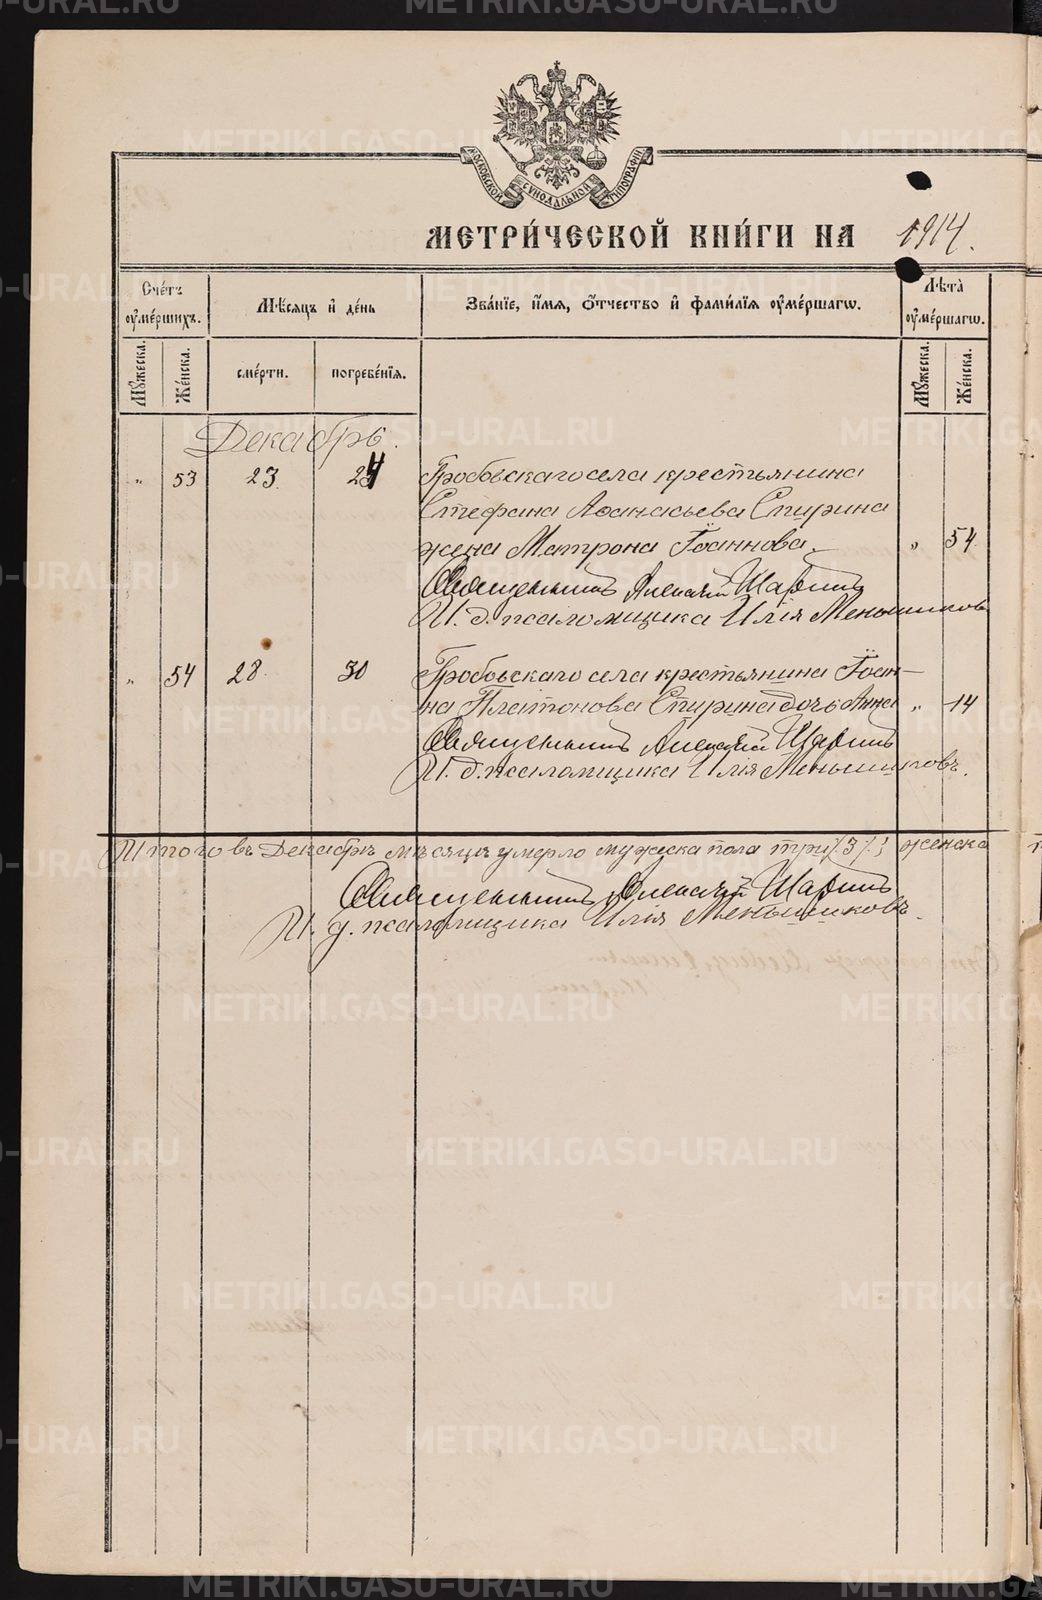 МОСКОВСКОЙ СУНОДАЛЬНОЙ ТИПОГРАФІИ
МЕТРИ́ЧЕСКОЙ КНИ́ГИ НА 1914.
Сче́тъ ᲂумѣ́ршихъ.
Мѣ́сяцъ и҆ де́нь
Зва́нїе, и҆́мя, ѻ҆́тчество и҆ фами́лїя ᲂу҆ме́ршагѡ.
Лѣта̀ ᲂу҆ме́ршагѡ.
Му́жеска.
Же́нска.
сме́рти.
погребе́нїя.
Му́жеска.
Же́нска.
Декабрь.
" 53 23. 24 Гробовскаго села крестьянина
Стефана Аѳанасьева Спирина
жена Матрона Іоаннова. " 54.
Священникъ Алексѣй Шаринъ
И. д. псаломщика Илія Меньшиковъ
" 54 28. 30 Гробовскаго села крестьянина Іоан-
на Платонова Спирина дочь Анна " 14
Священникъ Алексѣй Шаринъ
И. д. псаломщика Илія Меньшиковъ.
Итого въ Декабрѣ мѣсяцѣ умерло мужеска пола три /3/ женска
Священникъ Алексѣй Шаринъ
И. д. псаломщика Илія Меньшиковъ.
METRIKI.GASO-URAL.RU